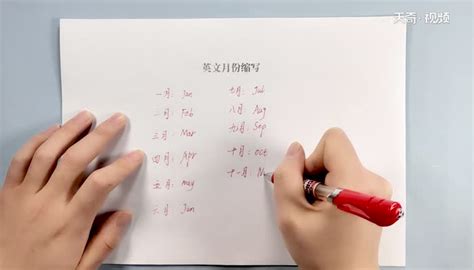 天奇·视频
英文月份缩写
一月：Jan
二月：Feb
三月：Mar
四月：Apr
五月：may
六月：Jun
七月：Jul
八月：Aug
九月：Sep
十月：oct
十一月：N